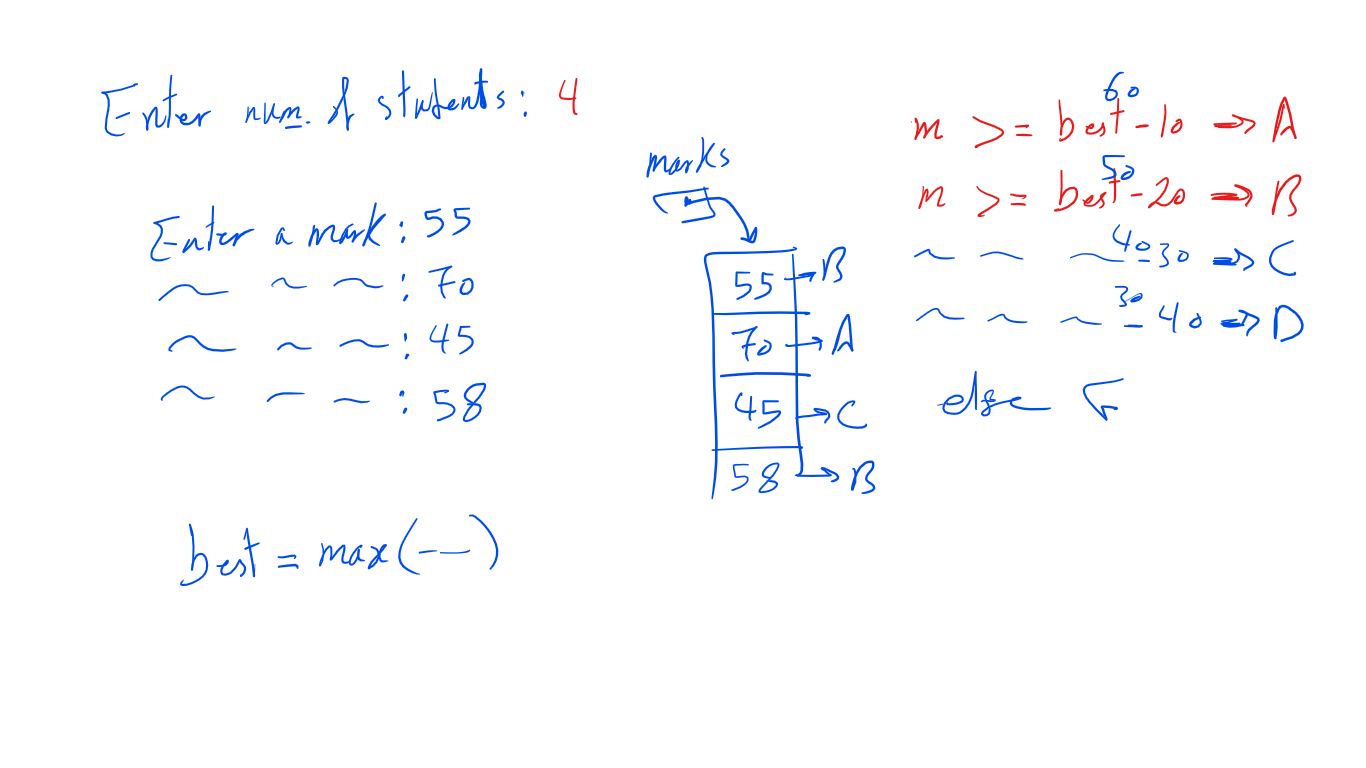 Enter num. of students: 4
Enter a mark: 55
~ ~ ~ : 70
~ ~ ~ : 45
~ ~ ~ : 58
best = max(- —)
marks
55 → B
70 → A
45 → C
58 → B
60
m >= best - 10 → A
50
m >= best - 20 → B
40
~ ~ ~ - 30 → C
30
~ ~ ~ - 40 → D
else F